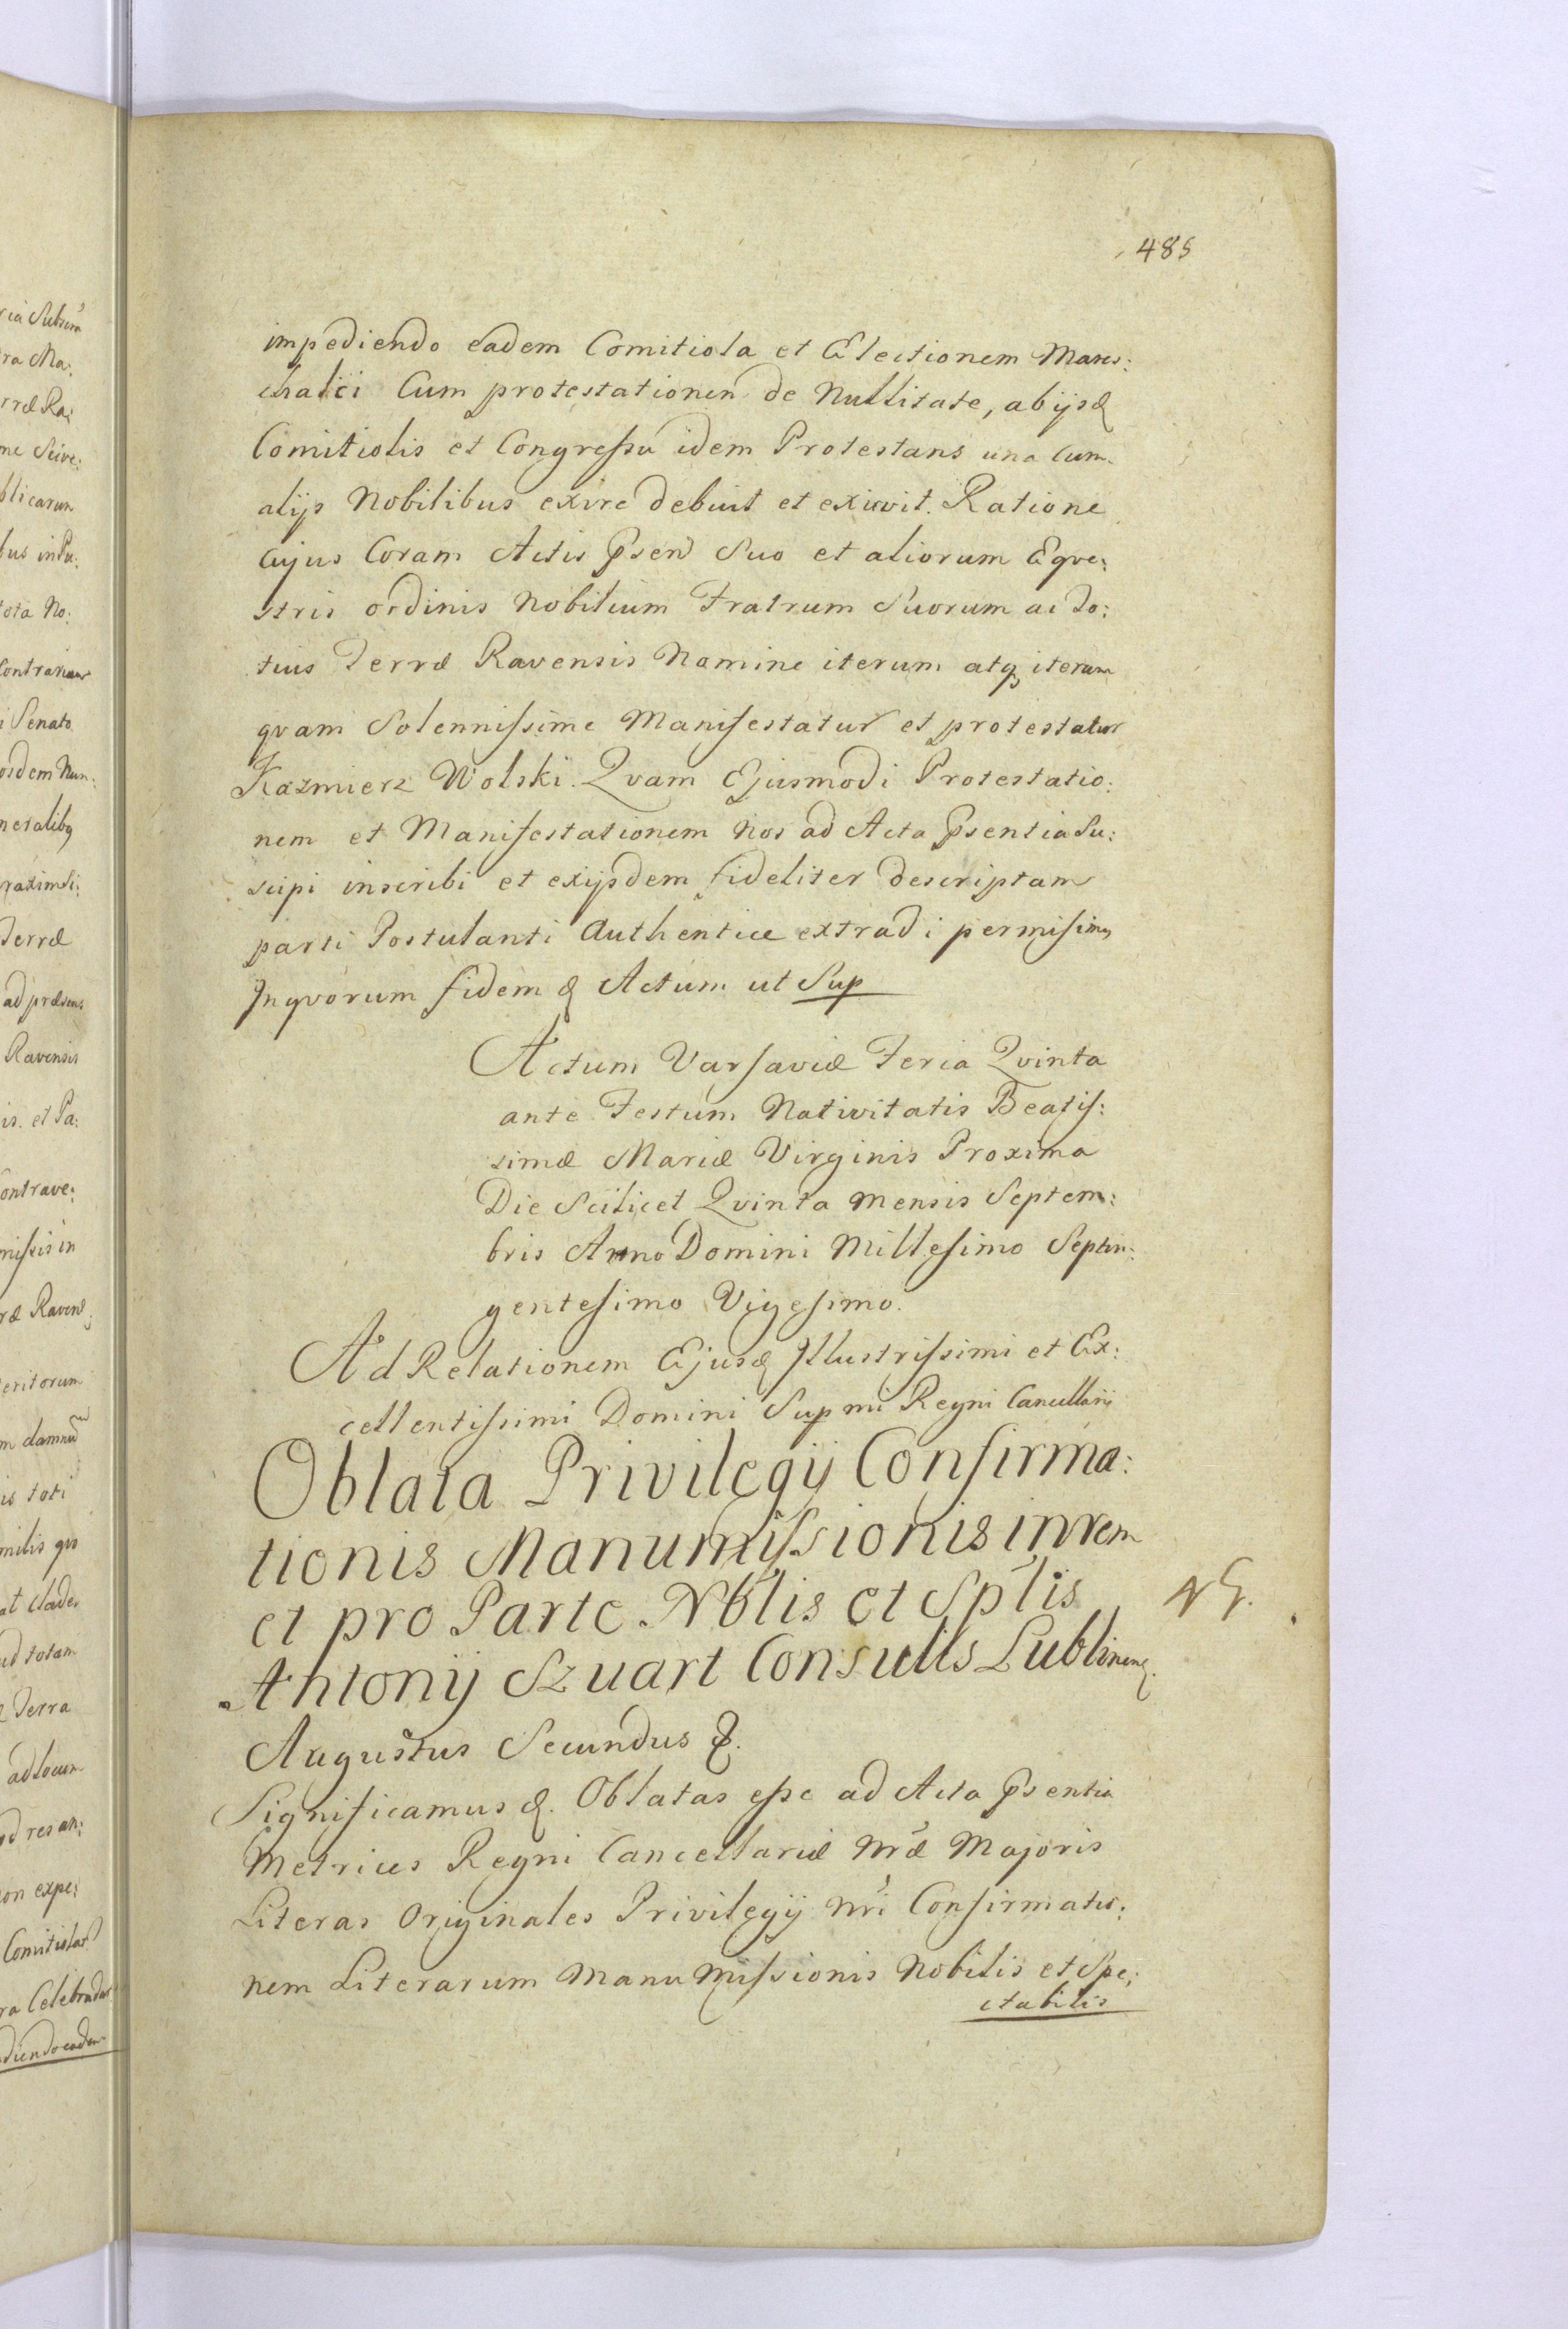 485
impediendo eadem Comitiola et Electionem Mares:
chalci Cum protestationen de Nullitate, ab ijsd
Comitiolis et Congressu idem Protestans una Cum
alijs Nobilibus exire debuit et exivvit. Ratione
Cujus Coram Actis Psen Suo et aliorum Eqve:
stris ordinis Nobilium Fratrum Suorum ac To:
tius Terræ Ravensis Nomine iterum atq iterum
qvam Solennissime Manifestatur et protestatur
Kazmierz Wolski. Qvam Ejusmodi Protestatio:
nem et Manifestationem Nos ad Acta Psentia Su:
scipi inscribi et exijsdem fideliter descriptam
parti Postulanti Authentice extradi permisimus
In qvorum fidem & Actum ut Sup
Actum Varsaviæ Feria Qvinta
ante Festum Nativitatis Beatis:
simæ Mariæ Virginis Proxima
Die Scilicet Qvinta Mensis Septem:
bris Anno Domini Millesimo Septin:
gentesimo Vigesimo.
Ad Relationem Ejusd Illustrissimi et Ex:
cellentissimi Domini Supmi Regni Cancellarij
Oblata Privilegij Confirma:
tionis Manumissionis in rem
et pro Parte Nblis et Sptlis
Antonij Szuart Consulis Lublinen
Augustus Secundus &.
Significamus &. Oblatas esse ad Acta Psentia
Metrices Regni Cancellariæ Nræ Majoris
Literas Originales Privilegij Nri Confirmatio:
nem Literarum Manumissionis Nobilis et Spe:
ctabilis